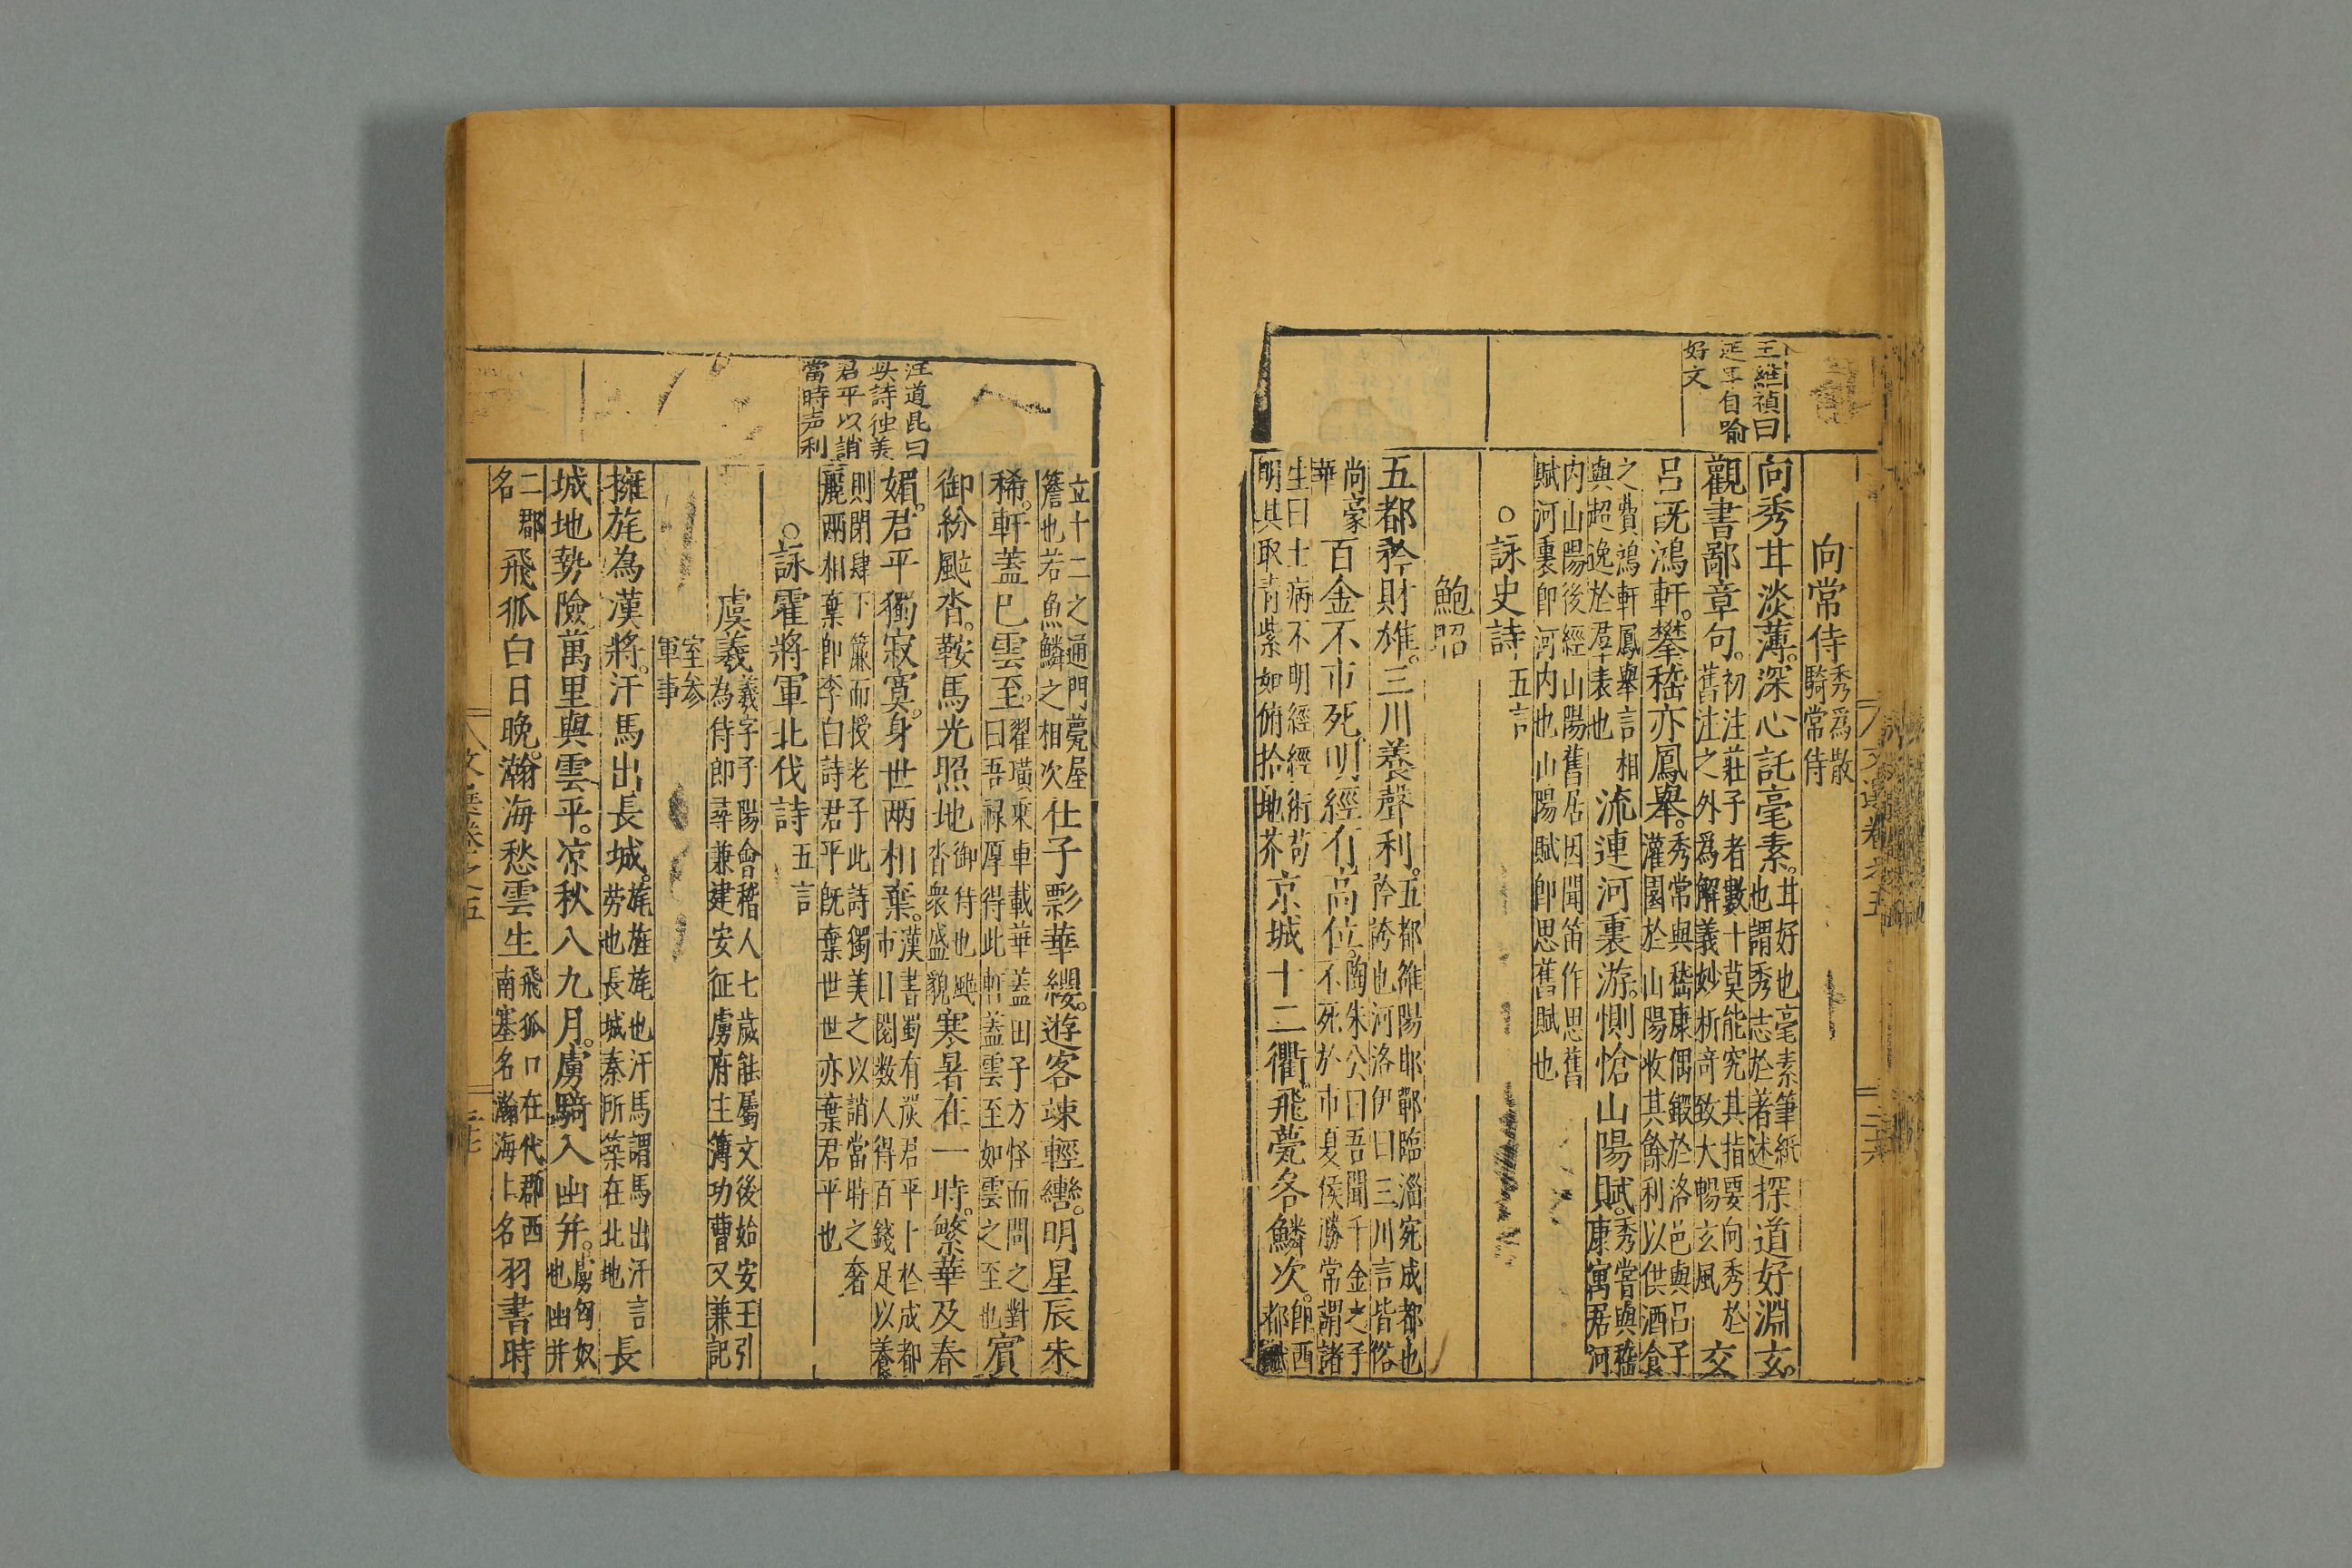 王維禎曰
延年自喻
好文
向常侍秀爲散騎常侍
向秀甘淡薄。深心託毫素。甘好也毫素筆紙也謂秀志於著述探道好淵玄。
觀書鄙章句。初注莊子者數十莫能究其指要向秀於舊注之外爲解義妙析奇致大暢玄風交
呂旣鴻軒。攀嵇亦鳳舉。秀常與嵇康偶鍛於洛邑與呂子灌園於山陽收其餘利以供酒食
之費鴻軒鳳舉言相與超逸於羣表也流連河裏游。惻愴山陽賦。秀嘗與嵇康寓居河
内山陽後經山陽舊居因聞笛作思舊賦河裏卽河内也山陽賦卽思舊賦也
○詠史詩五言
鮑昭
五都矜財雄。三川養聲利。五都雒陽邯鄲臨淄宛成都也矜誇也河洛伊曰三川言皆俗
尚豪華百金不市死。明經有高位。陶朱公曰吾聞千金之子不死於市夏侯勝常謂諸
生曰士病不明經經術苟明其取青紫如俯拾地芥京城十二衢。飛甍各鱗次。卽西都賦
汪道昆曰
此詩獨美
君平以誚
當時声利
立十二之通門甍屋簷也若魚鱗之相次仕子彯華纓。遊客竦輕轡。明星辰未
稀。軒蓋已雲至。翟璜乘車載華蓋田子方怪而問之對曰吾祿厚得此軒蓋雲至如雲之至也賓
御紛颯沓。鞍馬光照地御侍也颯沓衆盛貌寒暑在一時。繁華及春
媚。君平獨寂寞。身世兩相棄。漢書蜀有嚴君平卜於成都市日閱数人得百錢足以養
則閉肆下簾而授老子此詩獨美之以誚當時之奢麗兩相棄卽李白詩君平旣棄世世亦棄君平也
○詠霍將軍北伐詩五言
虞羲羲字子陽會稽人七歲能屬文後始安王引為侍郎尋兼建安征虜府主簿功曹又兼記
室参軍事
擁旄為漢將。汗馬出長城。旄旌旄也汗馬謂馬出汗言勞也長城秦所築在北地長
城地勢險萬里與雲平。凉秋八九月。虜騎入幽并。虜匈奴也幽并
二郡名飛狐白日晚。瀚海愁雲生飛狐口在代郡西南塞名瀚海上名羽書時